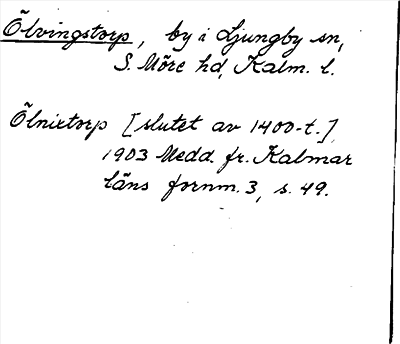 Ölvingstorp, by i Ljungby sn,
S. Möre hd, Kalm. l.
Ölnixtorp [slutet av 1400-t.]
1903 Medd. fr. Kalmar
läns fornm. 3, s. 49.